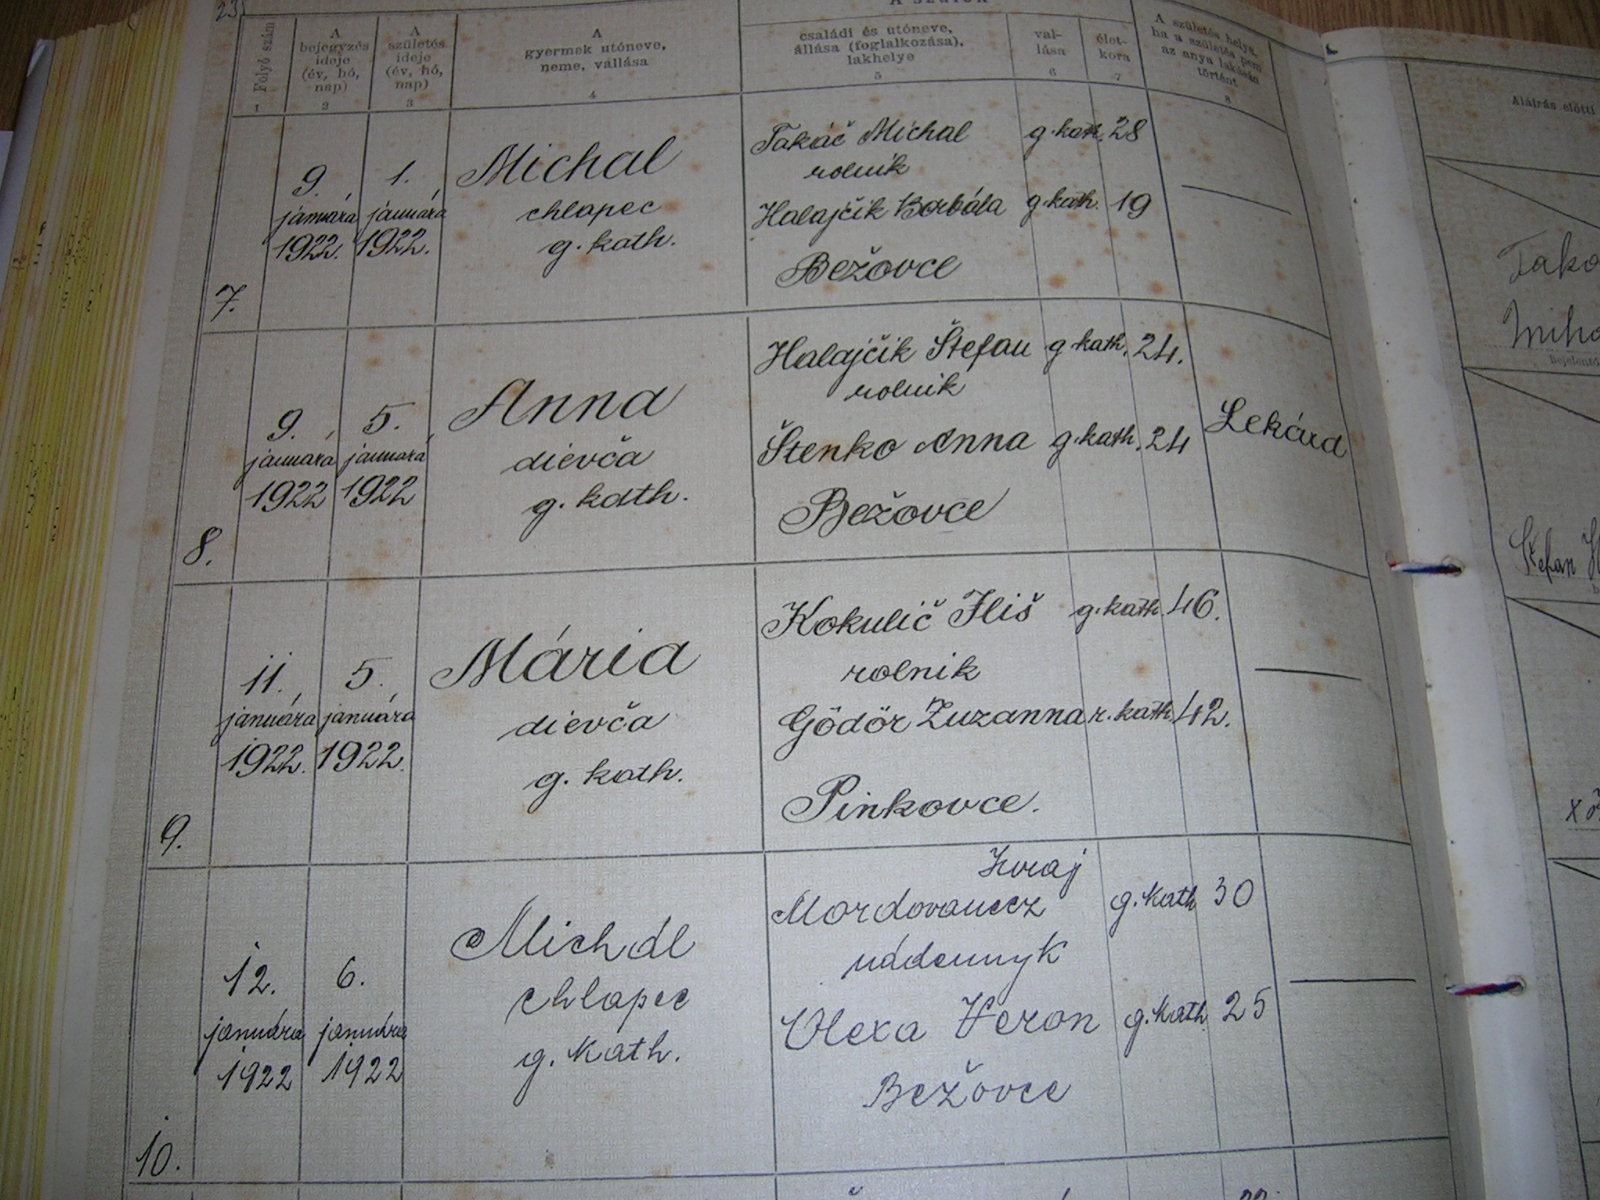 23
A szülők
Folyó szám
A bejegyzés ideje (év, hó, nap)
A születés ideje (év, hó, nap)
A gyermek utóneve, neme, vallása
családi és utóneve, állása (foglalkozása), lakhelye
vallása
életkora
A születés helye, ha a születés nem az anya lakásán történt
Aláírás előtti
1 2 3 4 5 6 7 8
7.
9. januára 1922.
1. januára 1922.
Michal
chlapec
g. kath.
Takáč Michal g. kath. 28
rolnik
Halajčik Borbála g. kath. 19
Bežovce
8.
9. januára 1922
5. januára 1922
Anna
dievča
g. kath.
Halajčik Štefan g kath. 24.
rolnik
Štenko Anna g. kath. 24
Bežovce
Lekárd
9.
11. januára 1922.
5. januára 1922.
Mária
dievča
g. kath.
Kokulič Iliš g. kath. 46.
rolnik
Gödör Zuzanna r. kath. 42.
Pinkovce.
10.
12. januára 1922
6. januára 1922
Michal
chlapec
g. kath.
Mordovancz g. kath 30
Olexa Veron g. kath 25
Bežovce
Štefan